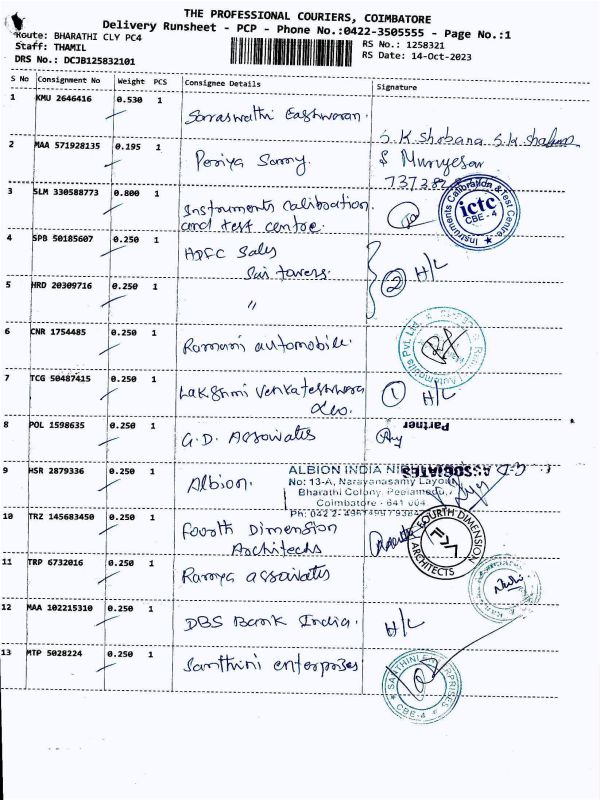 THE PROFESSIONAL COURIERS, COIMBATORE
Delivery Runsheet - PCP - Phone No.:0422-3505555 - Page No.:1
Route: BHARATHI CLY PC4
Staff: THAMIL
DRS No.: DCJB125832101
RS No.: 1258321
RS Date: 14-Oct-2023
S No Consignment No Weight PCS Consignee Details Signature
1 KMU 2646416 0.530 1 Saraswathi Eashwaran.
S.K Shobana S.K Shobana
2 MAA 571928135 0.195 1 Periya Samy. S Murugesan
3 SLM 330588773 0.800 1 Instruments Calibration
and test centre.
Instruments Calibration & Test Centre
ictc
CBE - 4
4 SPB 50185607 0.250 1 HDFC Sales
Sai towers.
2 H/L
5 HRD 20309716 0.250 1 "
6 CNR 1754485 0.250 1 Ramani automobile.
Automobile Pvt. Ltd
7 TCG 50487415 0.250 1 Lakshmi Venkateshwara
1 H/L
8 POL 1598635 0.250 1 G.D. Associates
Partner
G.D ASSOCIATES
9 HSR 2879336 0.250 1 Albion.
ALBION INDIA
No: 13-A, Narayanasamy Layout
Bharathi Colony, Peelamedu,
Coimbatore - 641 004
10 TRZ 145683450 0.250 1 Fourth Dimension
Architects
FOURTH DIMENSION
ARCHITECTS
11 TRP 6732016 0.250 1 Ramya associates
12 MAA 102215310 0.250 1 DBS Bank India. H/L
13 MTP 5028224 0.250 1 Santhini enterprises
SANTHINI ENTERPRISES
CBE-4